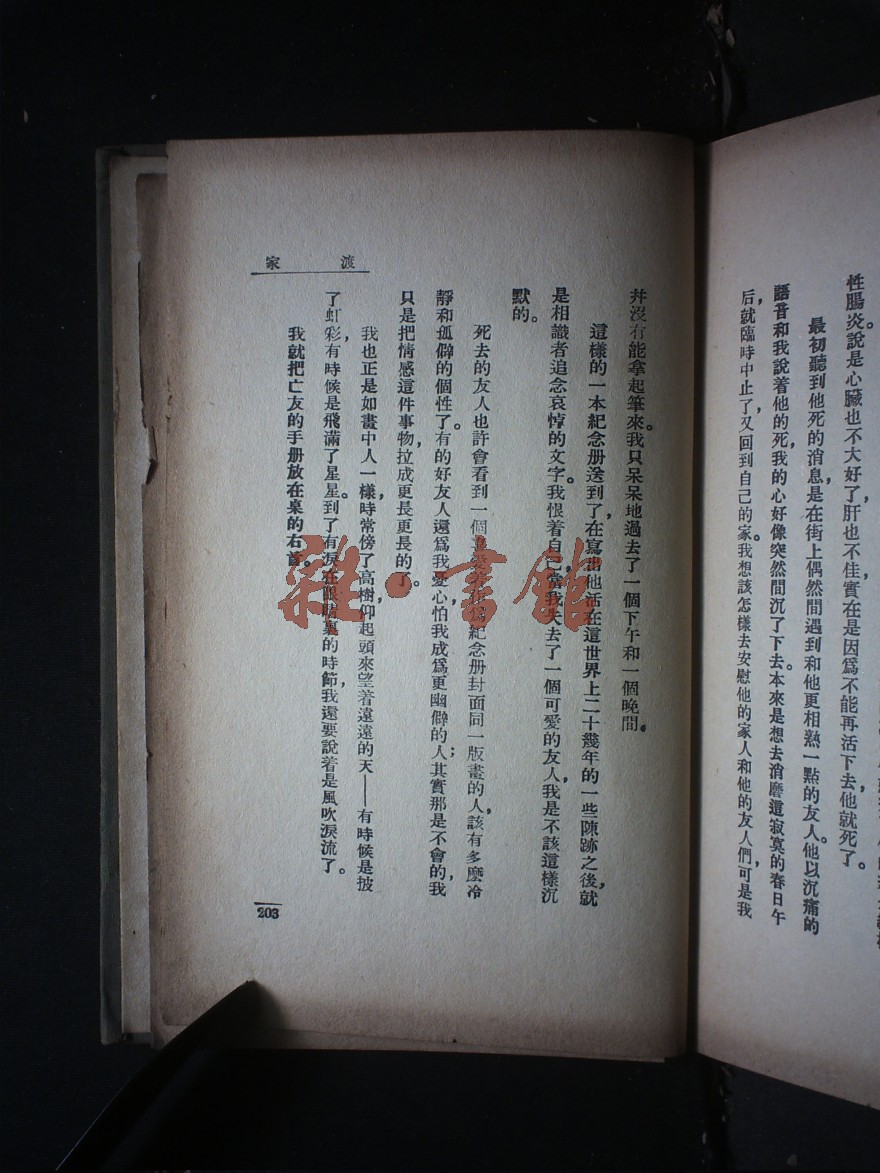 性腸炎說是心臟也不大好了，肝也不佳，實在是因爲不能再活下去，他就死了。
最初聽到他死的消息，是在街上偶然間遇到和他更相熟一點的友人。他以沉痛的
語音和我說着他的死，我的心好像突然間沉了下去。本來是想去消磨這寂寞的春日午
后，就臨時中止了，又回到自己的家。我想該怎樣去安慰他的家人和他的友人們，可是我
幷沒有能拿起筆來。我只呆呆地過去了一個下午和一個晚間。
這樣的一本紀念册送到了，在寫出他活在這世界上二十幾年的一些陳跡之後，就
是相識者追念哀悼的文字。我恨着自己，當我失去了一個可愛的友人，我是不該這樣沉
默的。
死去的友人也許會看到，一個喜愛紀念册封面同一版畫的人，該有多麼冷
靜和孤僻的個性了。有的好友人還爲我愛心，怕我成爲更幽僻的人；其實那是不會的，我
只是把情感這件事物拉成更長更長的了。
我也正是如畫中人一樣，時常傍了高樹，仰起頭來望著遠遠的天——有時候是披
了虹彩，有時候是飛滿了星星。到了有淚在眼睛裏的時節，我還要說着是風吹淚流了。
我就把亡友的手册放在桌的右首。
渡家
203
雜·書館